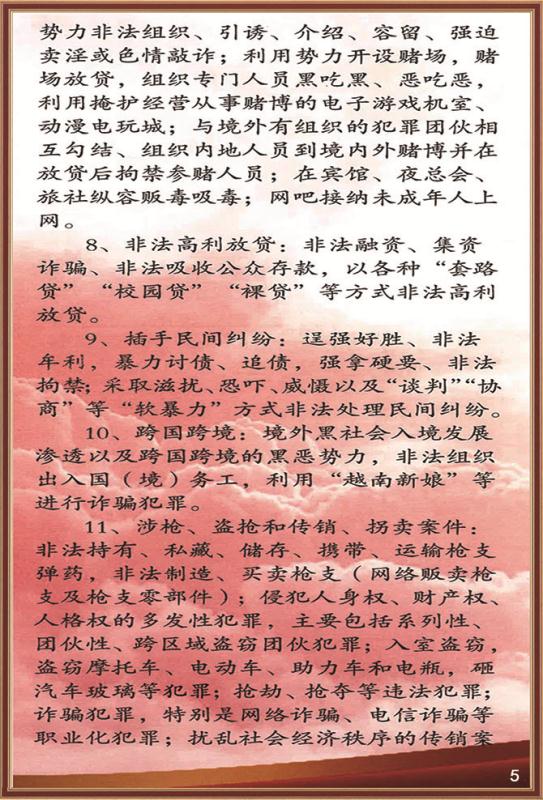 势力非法组织、引诱、介绍、容留、强迫
卖淫或色情敲诈；利用势力开设赌场，赌
场放贷，组织专门人员黑吃黑、恶吃恶，
利用掩护经营从事赌博的电子游戏机室、
动漫电玩城；与境外有组织的犯罪团伙相
互勾结、组织内地人员到境内外赌博并在
放贷后拘禁参赌人员；在宾馆、夜总会、
旅社纵容贩毒吸毒；网吧接纳未成年人上
网。
8、非法高利放贷：非法融资、集资
诈骗、非法吸收公众存款，以各种“套路
贷”“校园贷”“裸贷”等方式非法高利
放贷。
9、插手民间纠纷：逞强好胜、非法
牟利，暴力讨债、追债，强拿硬要、非法
拘禁；采取滋扰、恐吓、威慑以及“谈判”“协
商”等“软暴力”方式非法处理民间纠纷。
10、跨国跨境：境外黑社会入境发展
渗透以及跨国跨境的黑恶势力，非法组织
出入国（境）务工，利用“越南新娘”等
进行诈骗犯罪。
11、涉枪、盗抢和传销、拐卖案件：
非法持有、私藏、储存、携带、运输枪支
弹药，非法制造、买卖枪支（网络贩卖枪
支及枪支零部件）；侵犯人身权、财产权、
人格权的多发性犯罪，主要包括系列性、
团伙性、跨区域盗窃团伙犯罪；入室盗窃，
盗窃摩托车、电动车、助力车和电瓶，砸
汽车玻璃等犯罪；抢劫、抢夺等违法犯罪；
诈骗犯罪，特别是网络诈骗、电信诈骗等
职业化犯罪；扰乱社会经济秩序的传销案
5